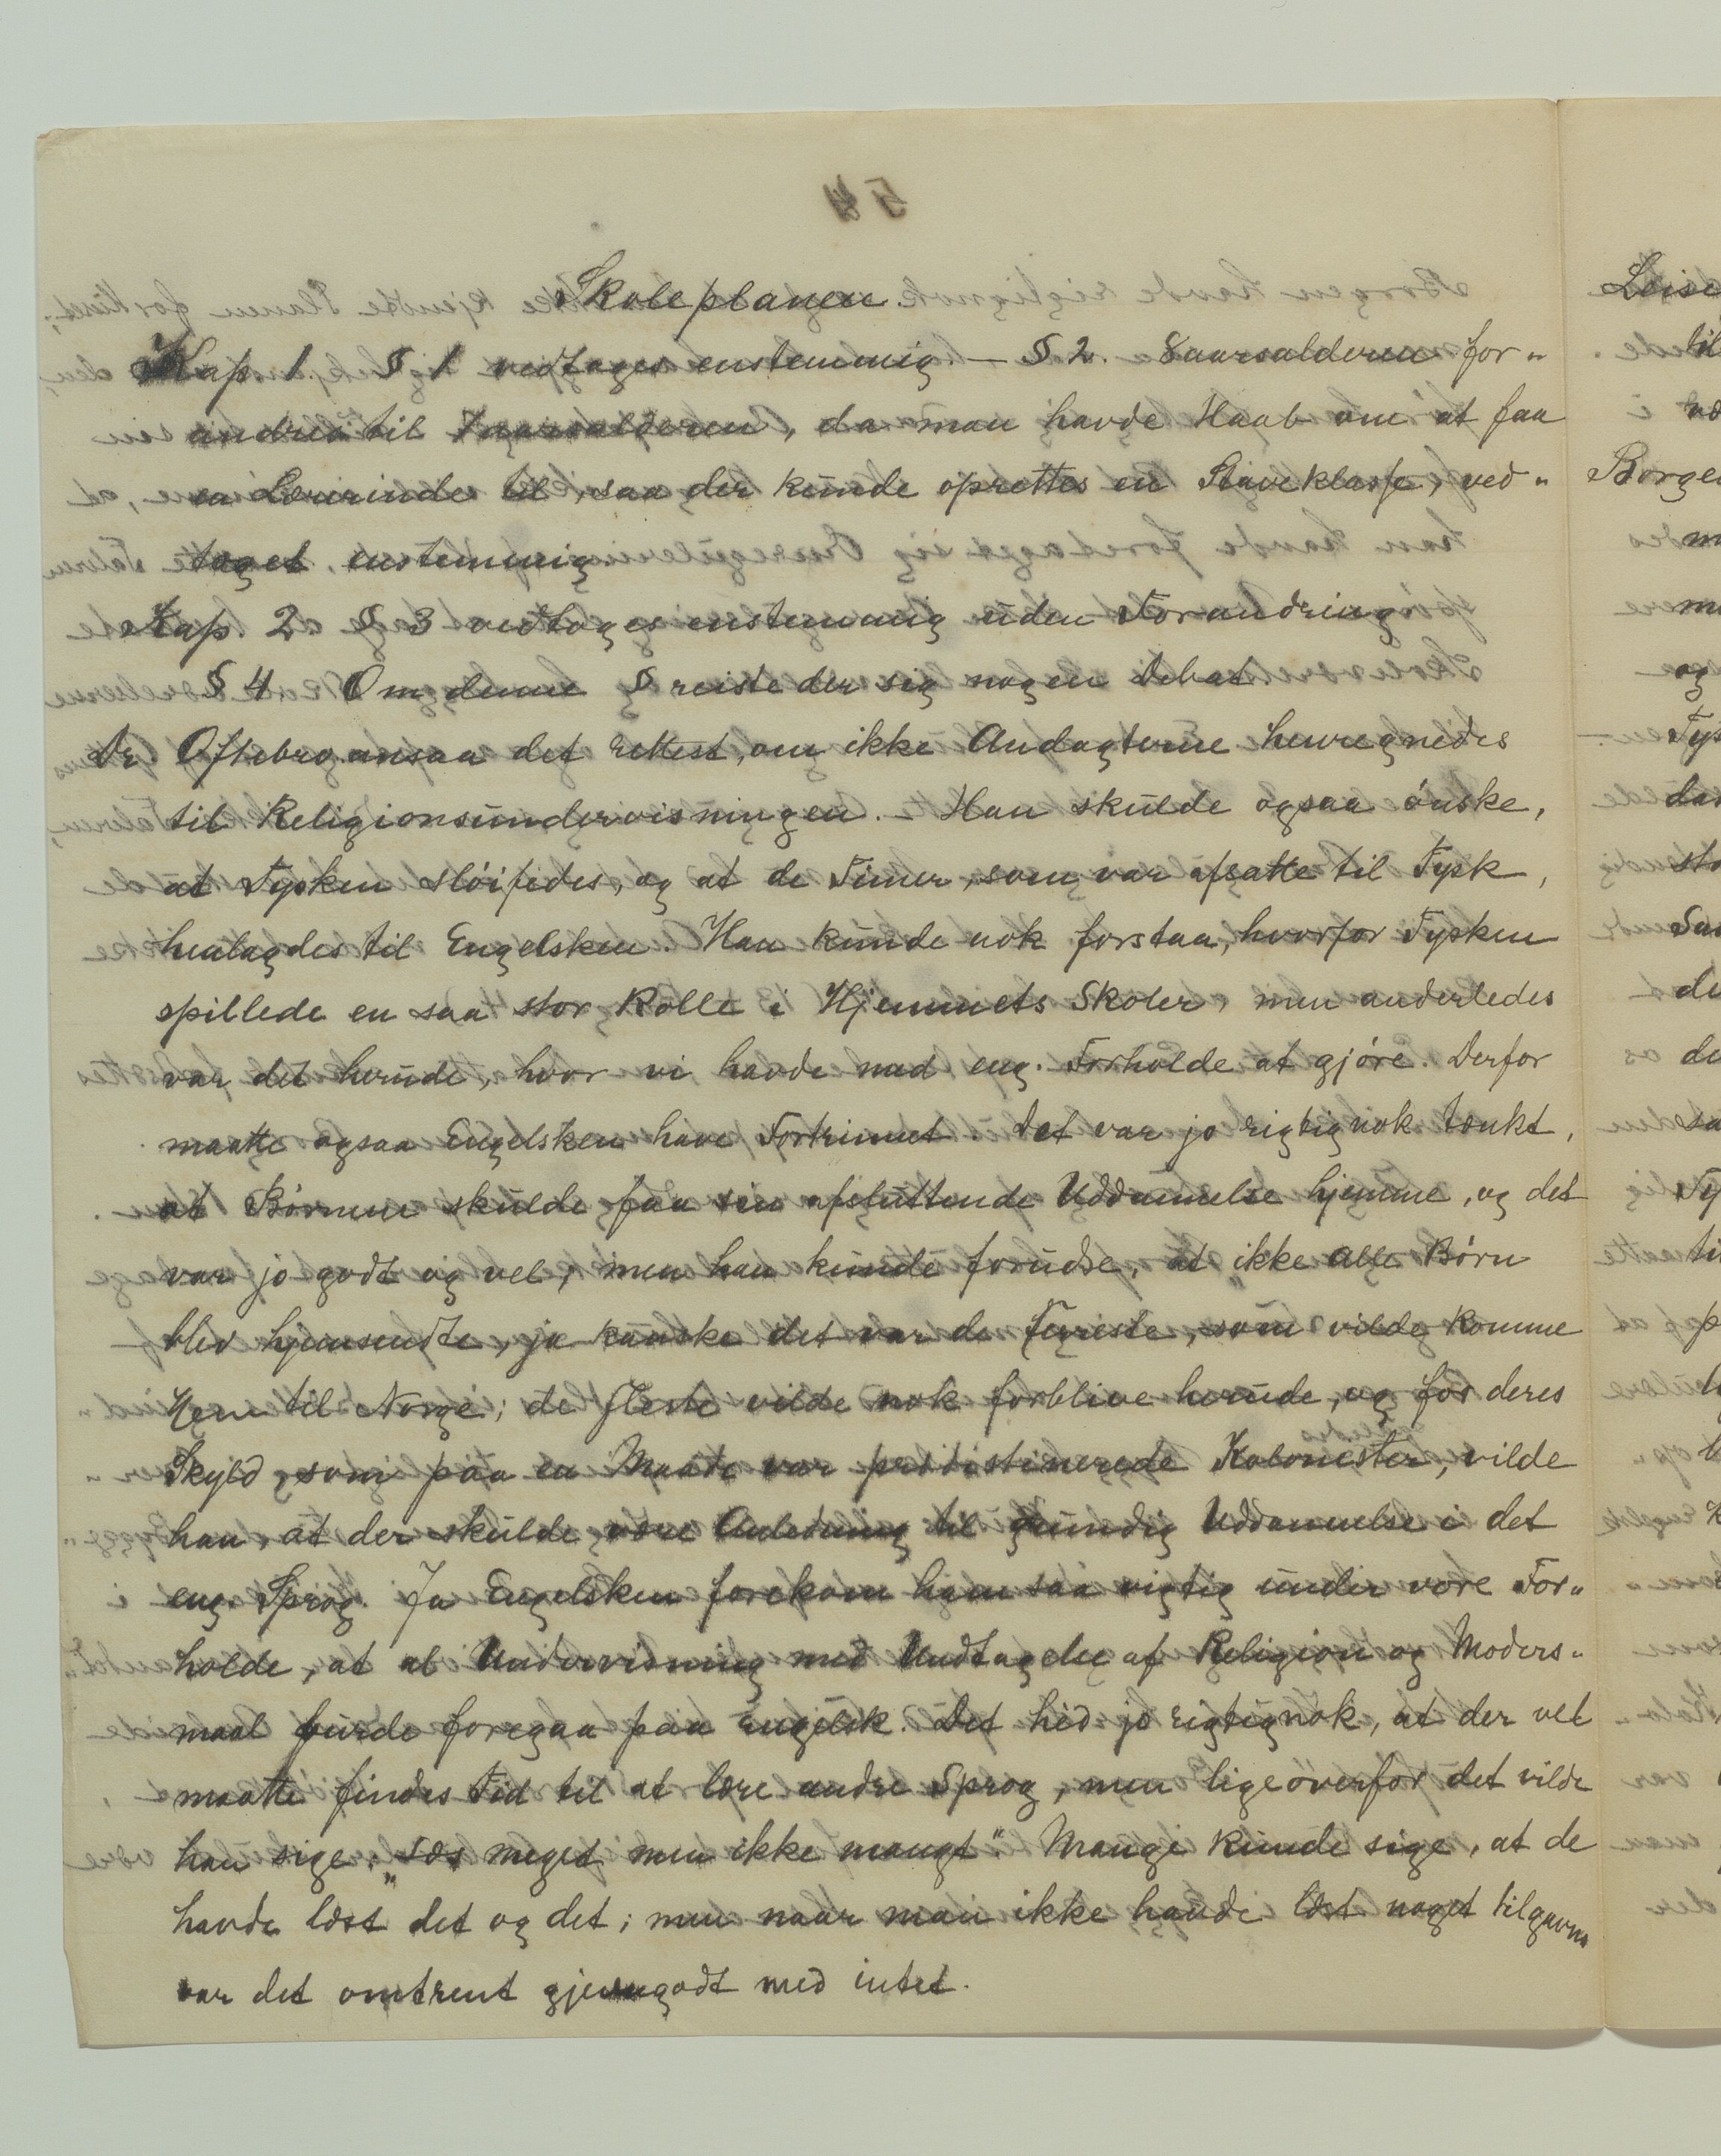 Skoleplanen.
Kap 1 § 1 vedtages enstemmig. — § 2. 8aarsalderen for„
andret til 7aarsalderen, da man havde Haab om at faa
en Lærerinde til, saa der kunde oprettes en Staveklasse, ved„
taget enstemmig.
Kap. 2 § 3 vedtoges enstemmig uden Forandring
§ 4 Om denne § reiste der sig nogen Debat
Dr Oftebro ansaa det rettest, om ikke Andagterne henregnedes
til Religionsundervisningen. — Han skulde ogsaa ønske,
at Tysken sløifedes, og at de Timer, som var afsatte til Tysk,
henlagdes til Engelsken. Han kunde nok forstaa, hvorfor Tysken
spillede en saa stor Rolle i Hjemmets Skoler, men anderledes
var det herude, hvor vi havde med eng. Forholde at gjøre. Derfor
maatte ogsaa Engelsken have Fortrinnet. Det var jo rigtignok tænkt,
at Børnene skulde faa sin afsluttende Uddannelse hjemme, og det
var jo godt og vel, men han kunde forudse, at ikke alle Børn
blev hjemsendte, ja kanske det var de færreste, som vilde komme
hjem til Norge; de fleste vilde nok forblive herude, og for deres
Skyld, som paa en Maade var prædistinerede Kolonister, vilde
han, at der skulde være Anledning til grundig Uddannelse i det
eng. Sprog. Ja Engelsken forekom ham saa vigtig under vore For„
holde, at al Undervisning med Undtagelse af Religion og Moders„
maal burde foregaa paa engelsk. Det hed jo rigtignok, at der vel
maatte findes Tid til at lære andre Sprog, men ligeoverfor det vilde
han sige: „Læs meget men ikke mangt“. Mange kunde sige, at de
havde læst det og det; men naar man ikke havde læst noget tilgavns
var det omtrent gjevngodt med intet.